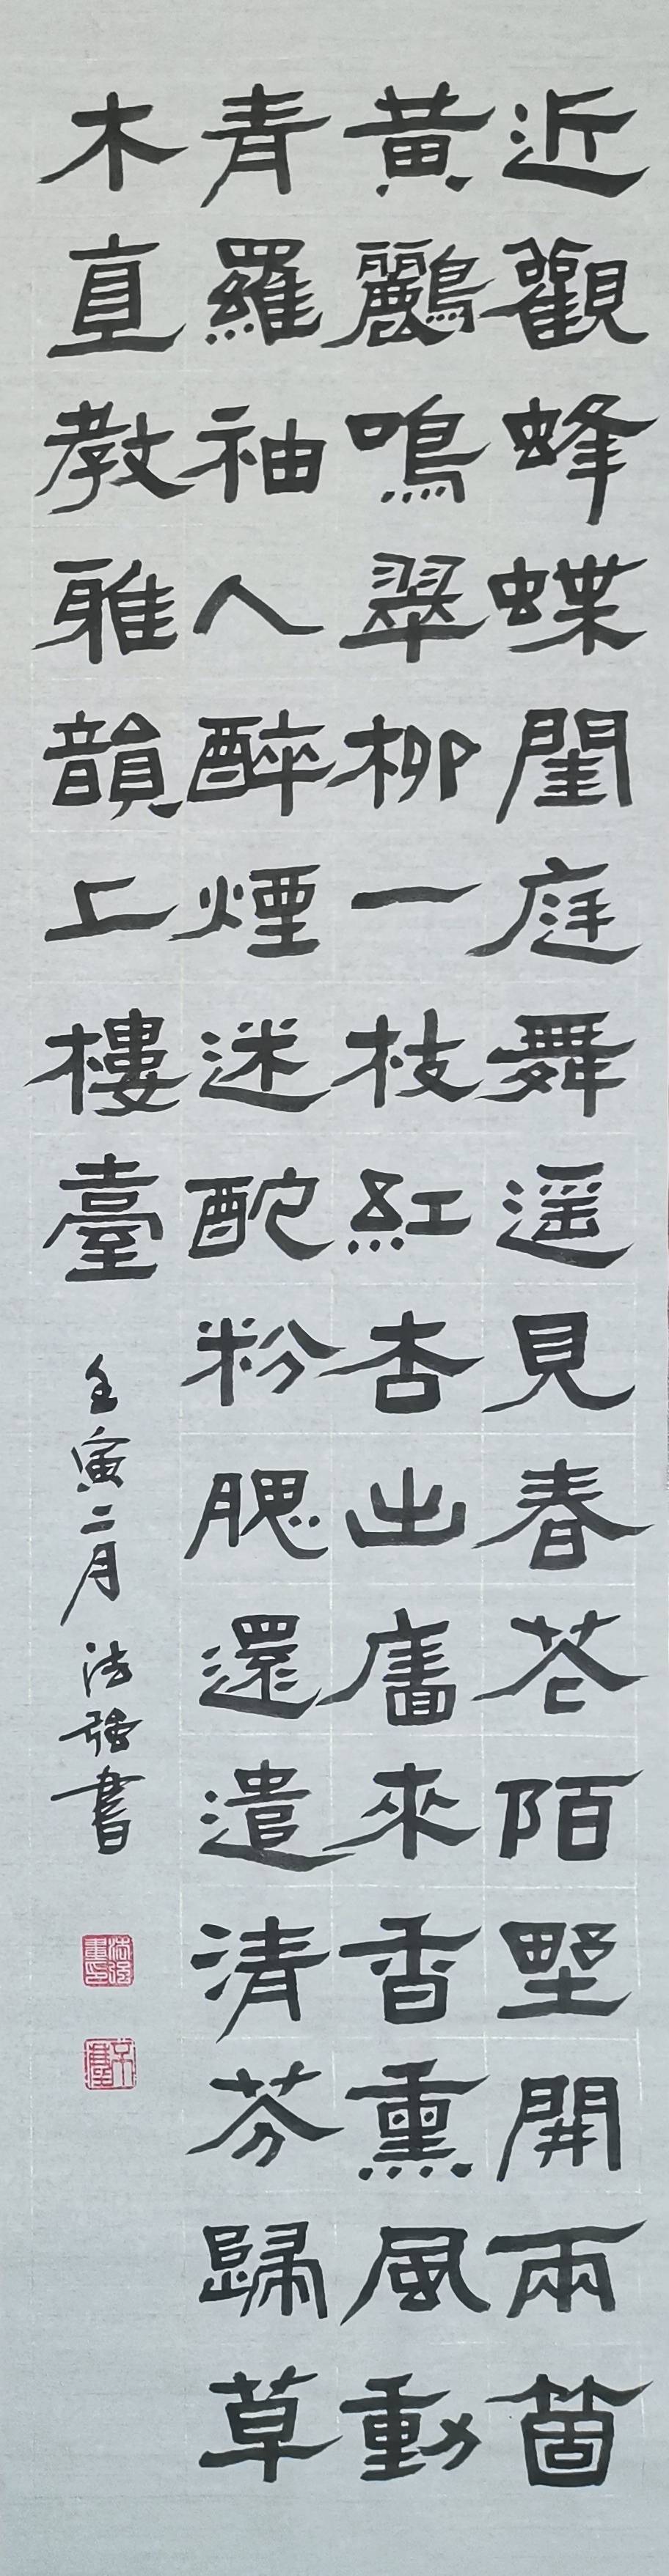 近觀蜂蝶閨庭舞遥見春花陌野開兩箇
黃鸝鳴翠柳一枝紅杏出舊來香熏風動
青羅袖人醉煙迷酡粉腮還遣清芬歸草
木直教雅韻上樓臺
壬寅二月法強書